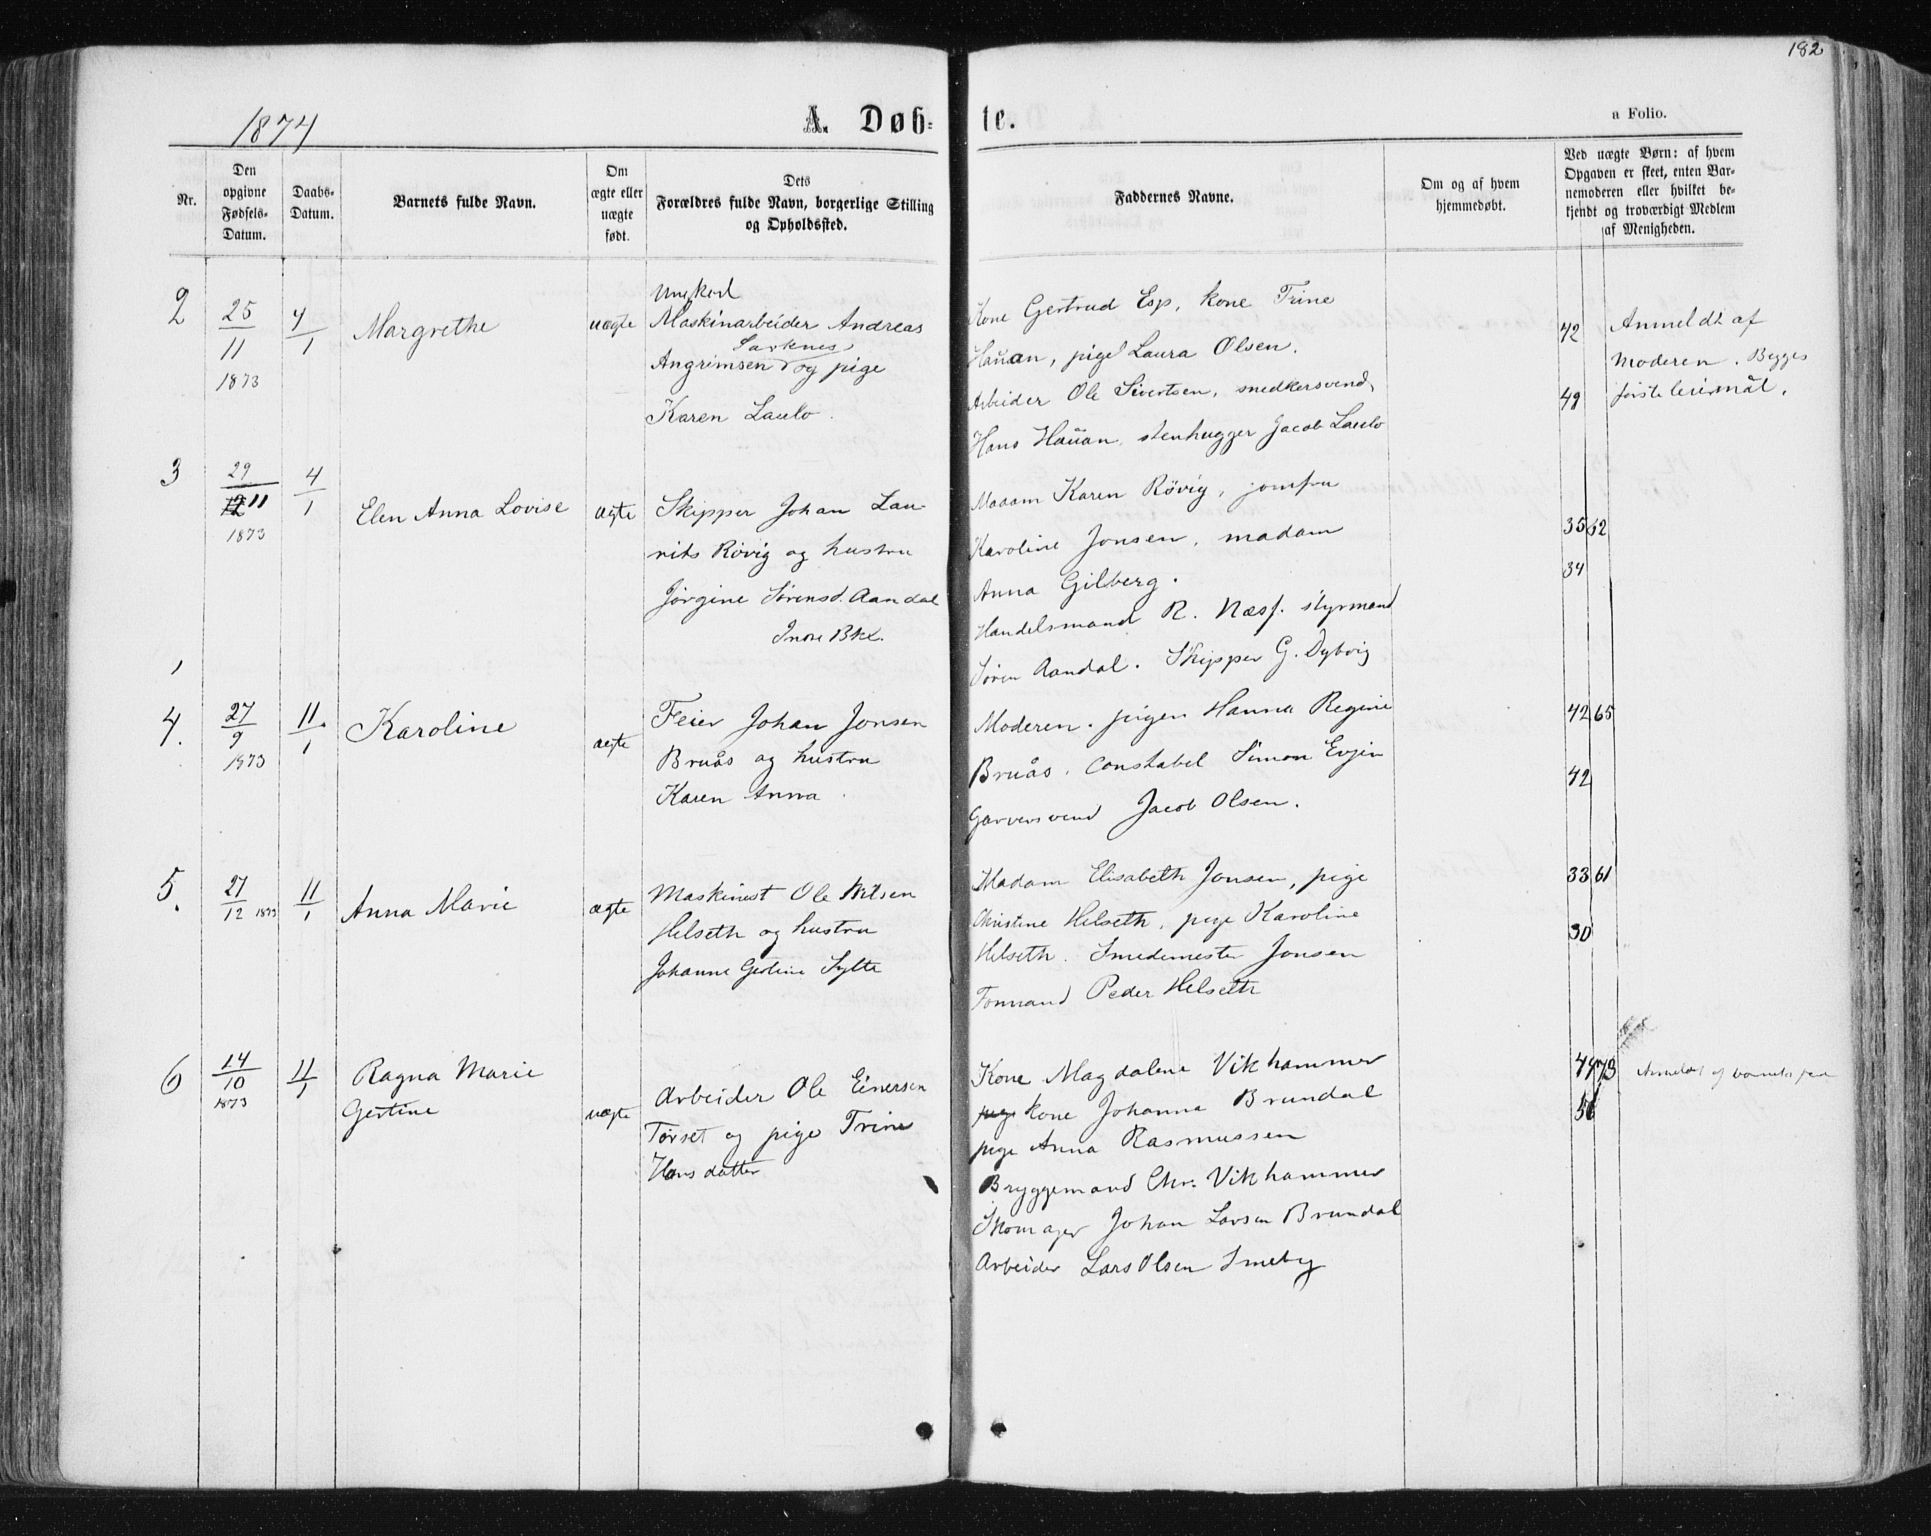 182
1874
A. Døb=
te.
a Folio.
Nr.
Den opgivne Fødsels-Datum.
Daabs-Datum.
Barnets fulde Navn.
Om ægte eller uægte født.
Dets Forældres fulde Navn, borgerlige Stilling og Opholdssted.
Faddernes Navne.
Om og af hvem hjemmedøbt.
Ved uægte Børn: af hvem Opgaven er skeet, enten Barnemoderen eller hvilket bekjendt og troværdigt Medlem af Menigheden.
2
25/11 1873
4/1
Margrethe
uægte
Ungkarl
Maskinarbeider Andreas
Angrimsen og pige
Karen Laulo.
Kone Gertrud Esp, kone Trine
Hauan, pige Laura Olsen.
Arbeider Ole Sivertsen, snedkersvend
Hans Hauan, stenhugger Jacob Laulo
42
49
Anmeldt af
Moderen. Begges
første leiermål.
3
29/11 1873
4/1
Elen Anna Lovise
ægte
Skipper Johan Lau-
rits Røvig og hustru
Jørgine Sørensd. Aandal
Madam Karen Røvig, jomfru
Karoline Jonsen, madam
Anna Gilberg.
Handelsmand R. Næss. styrmand
Søren Aandal. Skipper G. Dybvig
35 62
34
4.
27/9 1873
11/1
Karoline
ægte
Feier Johan Jonsen
Bruås og hustru
Karen Anna.
Moderen. pigen Hanna Regine
Bruås. constabel Simon Evjen
Garversvend Jacob Olsen.
42 65
42
5.
27/12 1873
11/1
Anna Marie
ægte
Maskinist Ole Nilsen
Helseth og hustru
Johanne Gertine Sylte
Madam Elisabeth Jonsen, pige
Christine Helseth, pige Karoline
Helseth. Smedemester Jonsen
Tommand Peder Helseth
33 61
30
6
14/10 1873
11/1
Ragna Marie
Gertine
uægte
Arbeider Ole Einersen
Tørset og pige Trine
Hansdatter
Kone Magdalene Vikhammer
pige kone Johanna Brundal
pige Anna Rasmussen
Bryggemand Chr. Vikhammer
Skomager Johan Larsen Brundal
Arbeider Lars Olsen Smeby
44 73
56
Anmeldt af barnets far